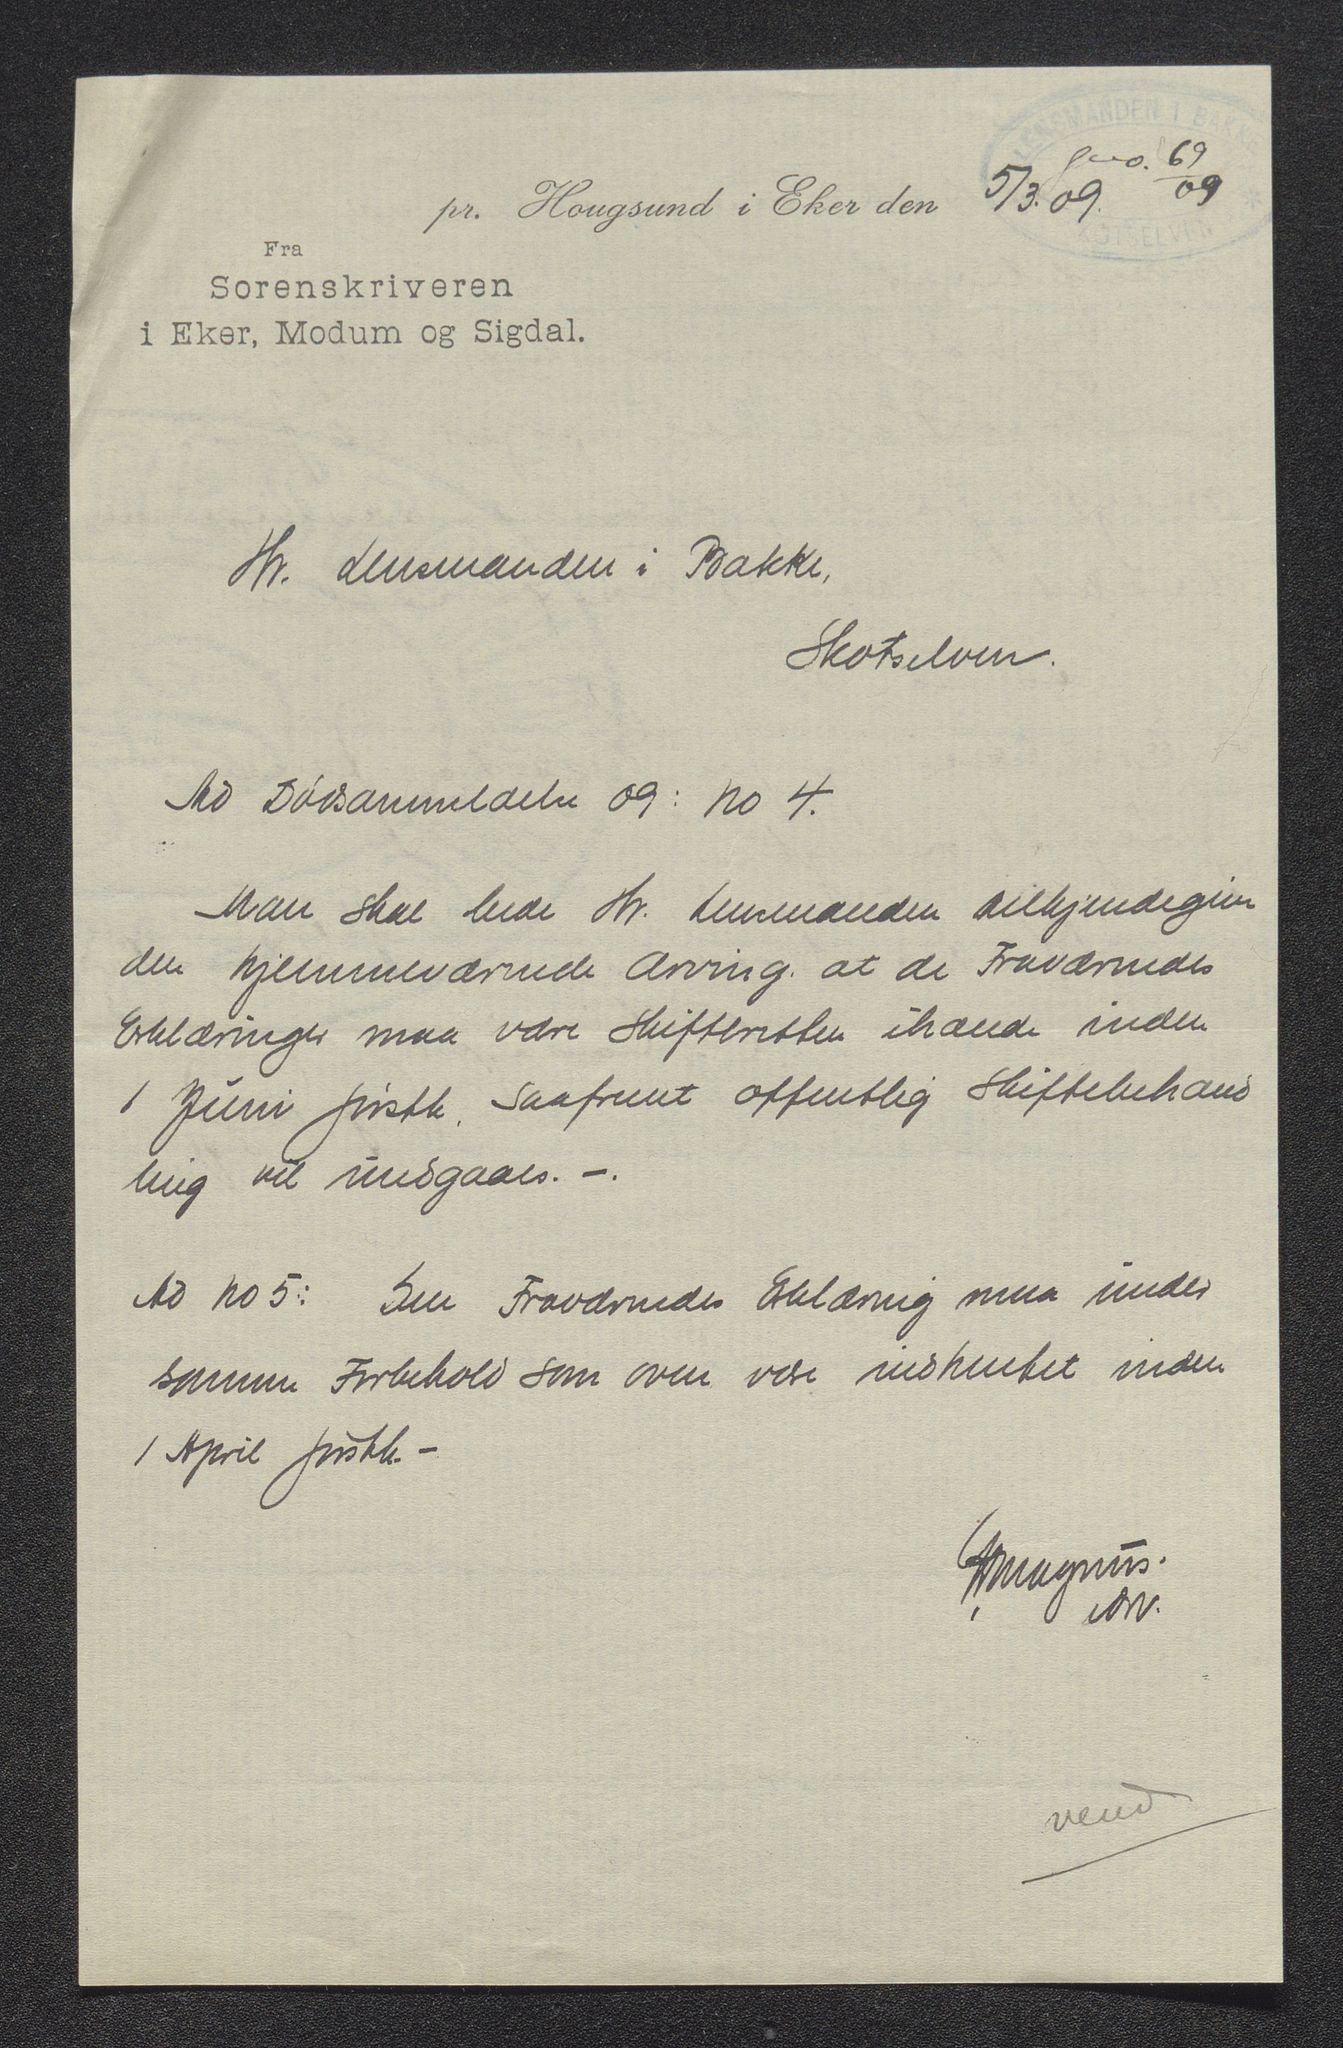 LENSMANDEN I BAKKE
SKOTSELVEN
69
09
pr. Hougsund i Eker den 5/3. 09.
Fra
Sorenskriveren
i Eker, Modum og Sigdal.
Hr. Lensmanden i Bakke,
Skotselven.
Ad Dødsanmeldelse 09: No 4.
Man skal bede Hr. Lensmanden tilkjendegive
den hjemmeværende Arving. at de Fraværendes
Erklæringer maa være Skifteretten ihænde inden
1 Juni førstk. saafremt offentlig Skiftebehand
ling vil undgaaes. -.
Ad No 5: Den Fraværendes Erklæring maa under
samme Forbehold som oven være indhentet inden
1 April førstk. -
Magnus.
vend